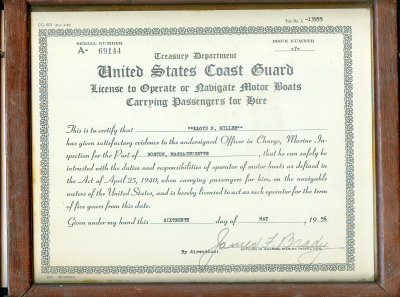 File No. 1 -13959
SERIAL NUMBER
A- 69144
ISSUE NUMBER
-7-
Treasury Department
United States Coast Guard
License to Operate or Navigate Motor Boats
Carrying Passengers for Hire
This is to certify that **LLOYD P. MILLER**
has given satisfactory evidence to the undersigned Officer in Charge, Marine In-
spection for the Port of BOSTON, MASSACHUSETTS, that he can safely be
intrusted with the duties and responsibilities of operator of motor boats as defined in
the Act of April 25, 1940, when carrying passengers for hire, on the navigable
waters of the United States, and is hereby licensed to act as such operator for the term
of five years from this date.
Given under my hand this SIXTEENTH day of MAY, 19 56
James F. Brady
By direction:
OFFICER IN CHARGE, MARINE INSPECTION